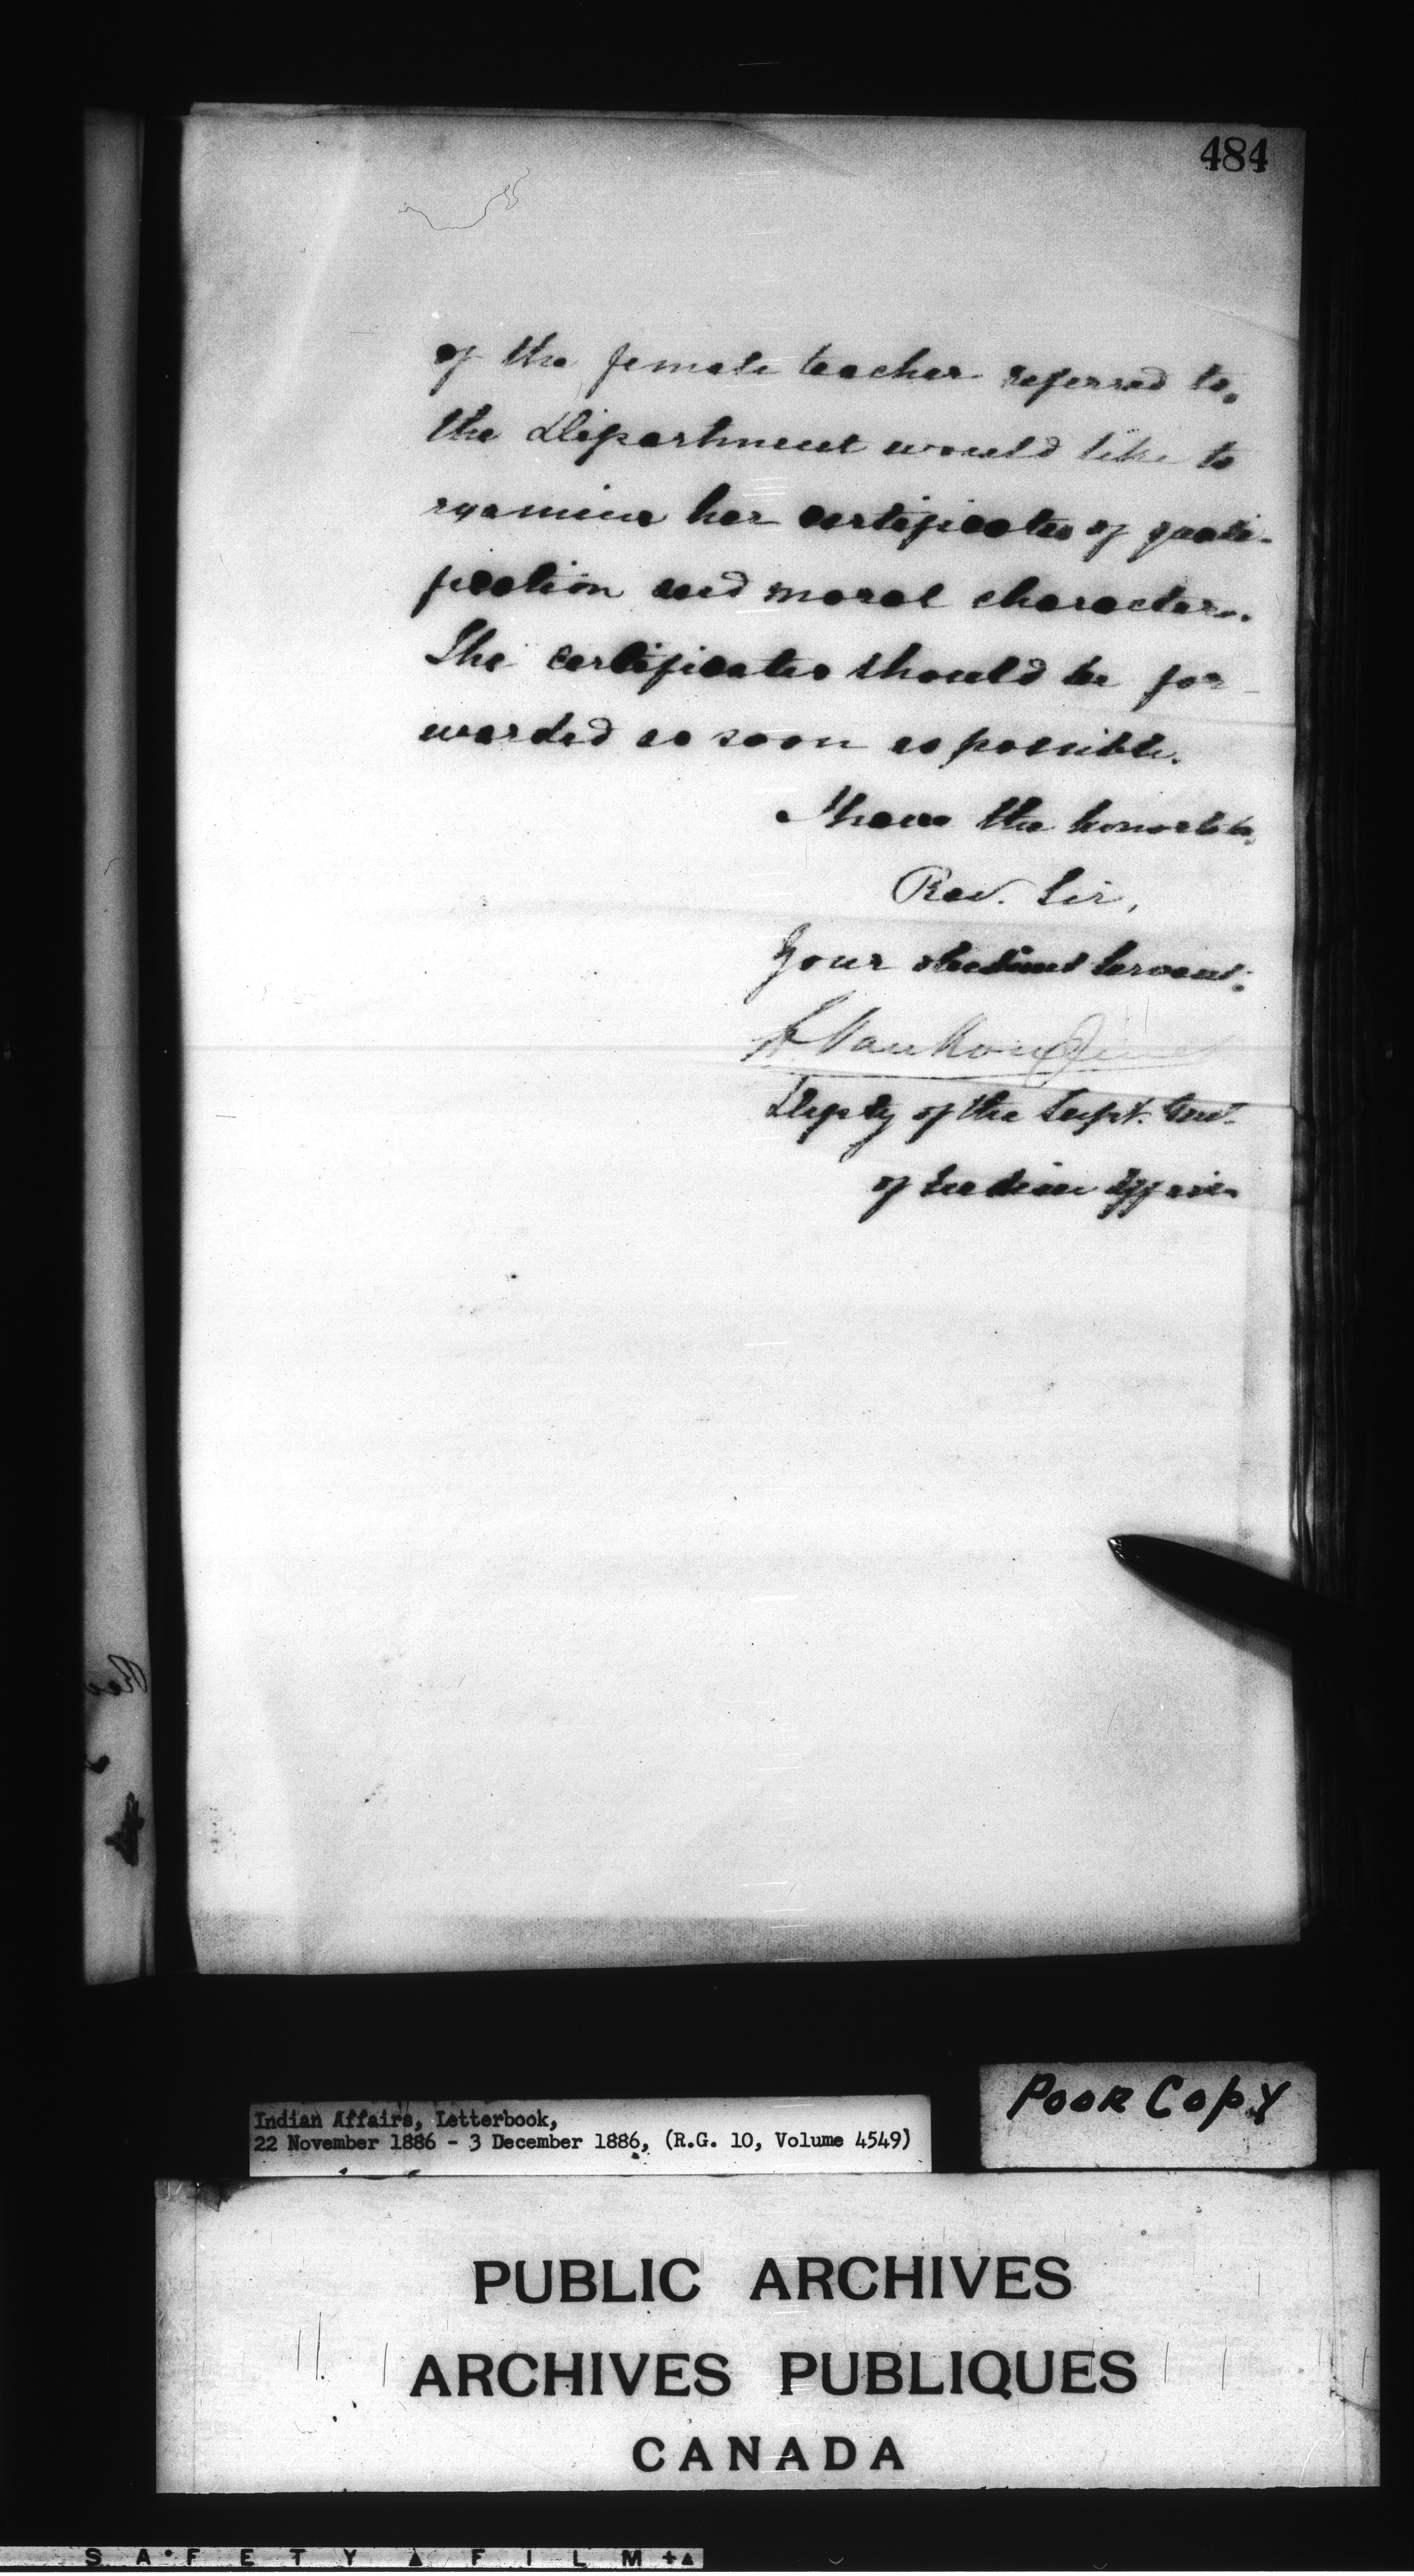 484
of the female teacher referred to,
the Department would like to
examine her certificates of quali-
fication and moral character.
The certificates should be for-
warded as soon as possible.
I have the honor to be,
Rev. Sir,
Your obedient servant,
L. VanKoughnet
Deputy of the Supt. Genl.
of Indian Affairs
Poor Copy
Indian Affairs, Letterbook,
22 November 1886 - 3 December 1886, (R.G. 10, Volume 4549)
PUBLIC ARCHIVES
ARCHIVES PUBLIQUES
CANADA
SAFETY FILM